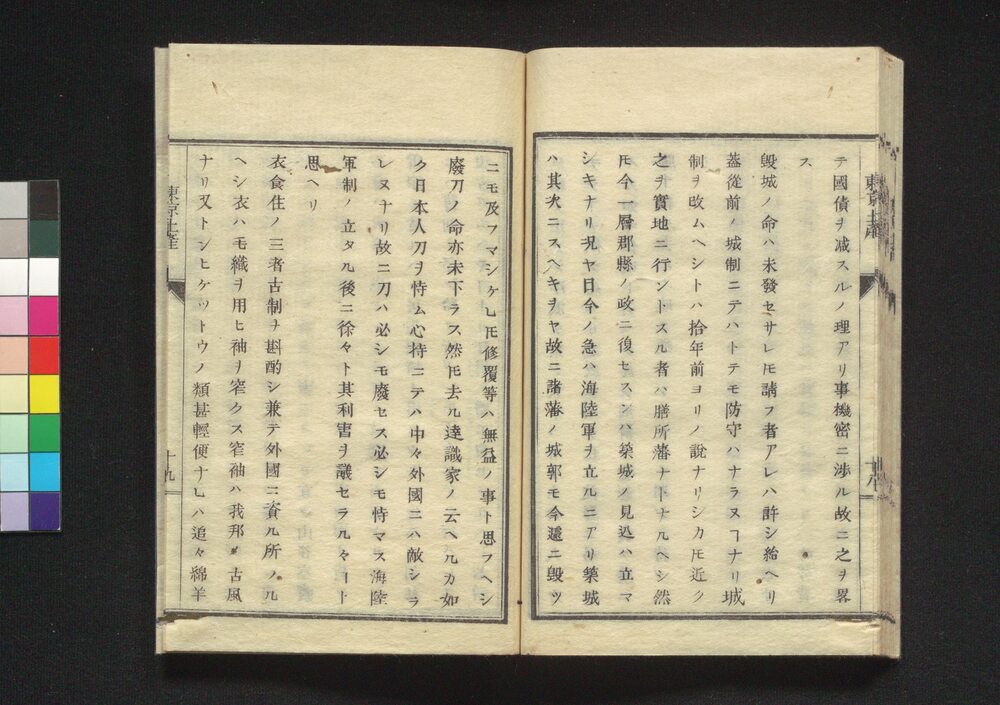 テ國債ヲ减スルノ理アリ事機密ニ涉ル故ニ之ヲ畧
ス
毀城ノ命ハ未發セサレ𪜈請フ者アレハ許シ給ヘリ
蓋從前ノ城制ニテハトテモ防守ハナラヌヿナリ城
制ヲ改ムヘシトハ拾年前ヨリノ說ナリシカ𪜈近ク
之ヲ實地ニ行ントスル者ハ膳所藩ナトナルヘシ然
𪜈今一層郡縣ノ政ニ復セスンハ築城ノ見込ハ立マ
シキナリ況ヤ日今ノ急ハ海陸軍ヲ立ルニアリ築城
ハ其次ニスヘキヲヤ故ニ諸藩ノ城郭モ今遽ニ毀ツ
東京土産
十八
ニモ及フマシケレ𪜈修覆等ハ無益ノ事ト思フヘシ
廢刀ノ命亦未下ラス然𪜈去ル達識家ノ云ヘルカ如
ク日本人刀ヲ恃ム心持ニテハ中々外國ニハ敵シラ
レヌナリ故ニ刀ハ必シモ廢セス必シモ恃マス海陸
軍制ノ立タル後ニ徐々ト其利害ヲ議セラルヘヿト
思ヘリ
衣食住ノ三者古制ヲ斟酌シ兼テ外國ニ資ル所ノル
ヘシ衣ハモ織ヲ用ヒ袖ヲ窄クス窄袖ハ我邦ノ古風
ナリ又トンヒケットウノ類甚輕便ナレハ追々綿羊
東京土産
十九